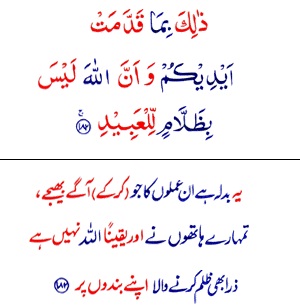 ذٰلِكَ بِمَا قَدَّمَتْ
اَيْدِيْكُمْ وَ اَنَّ اللّٰهَ لَيْسَ
بِظَلَّامٍ لِّلْعَبِيْدِ ۚ﴿۱۸۲﴾
یہ بدلہ ہے ان عملوں کا جو (کر کے) آگے بھیجے،
تمہارے ہاتھوں نے اور یقیناً اللہ نہیں ہے
ذرا بھی ظلم کرنے والا اپنے بندوں پر ﴿۱۸۲﴾